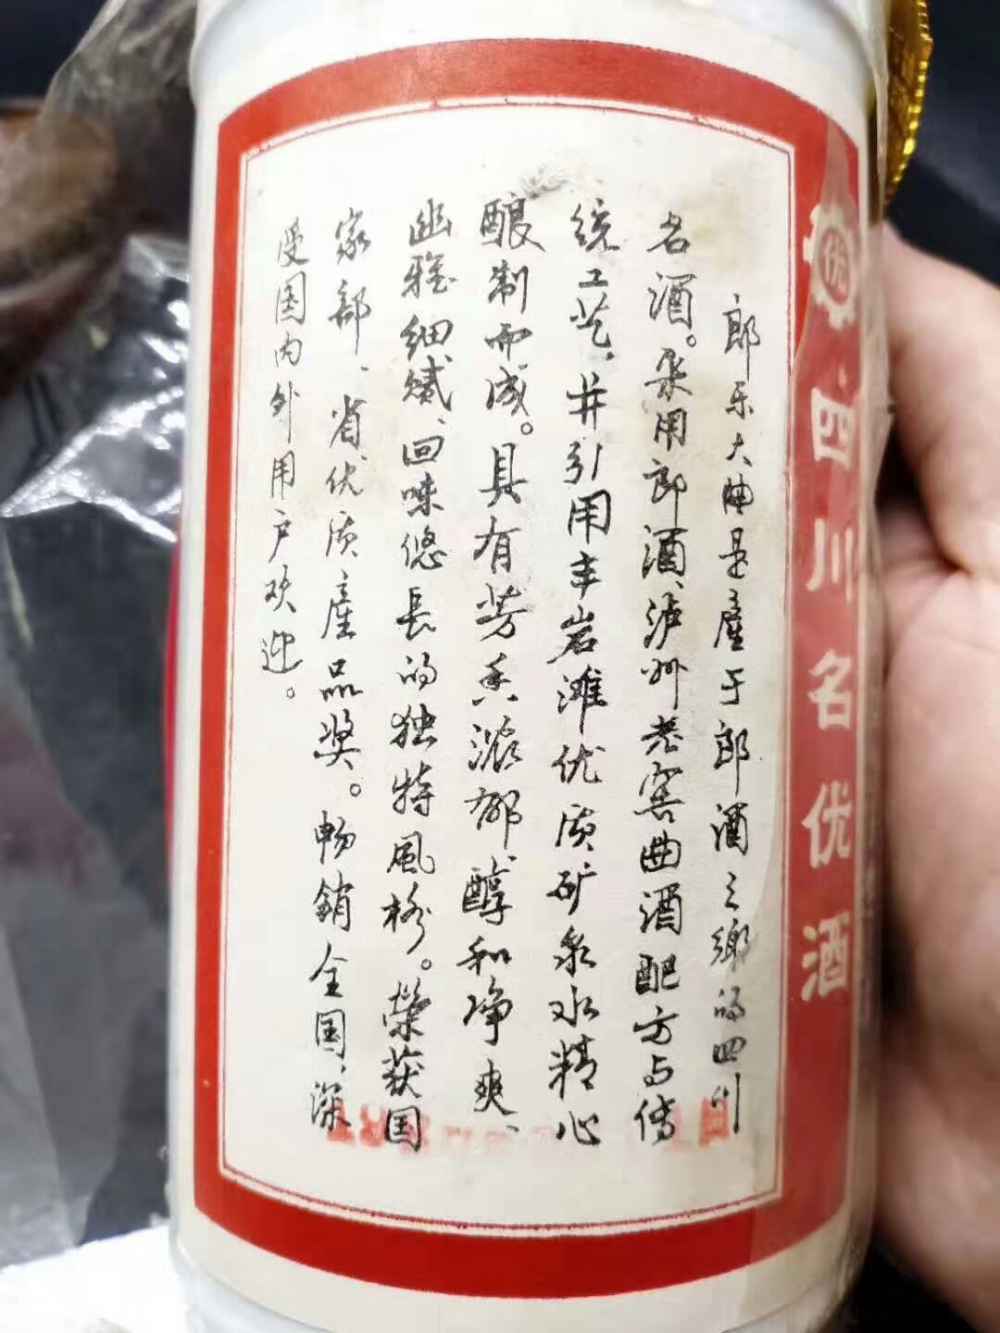 郎乐大曲是産于郎酒之鄉的四川
名酒。采用郎酒、泸州老窖曲酒配方与传
统工艺、并引用丰岩滩优质矿泉水精心
酿制而成。具有芳香浓郁、醇和净爽、
幽雅细腻、回味悠長的独特風格。榮获国
家部、省优质産品奖。畅銷全国、深
受国内外用户欢迎。
优
四川名优酒